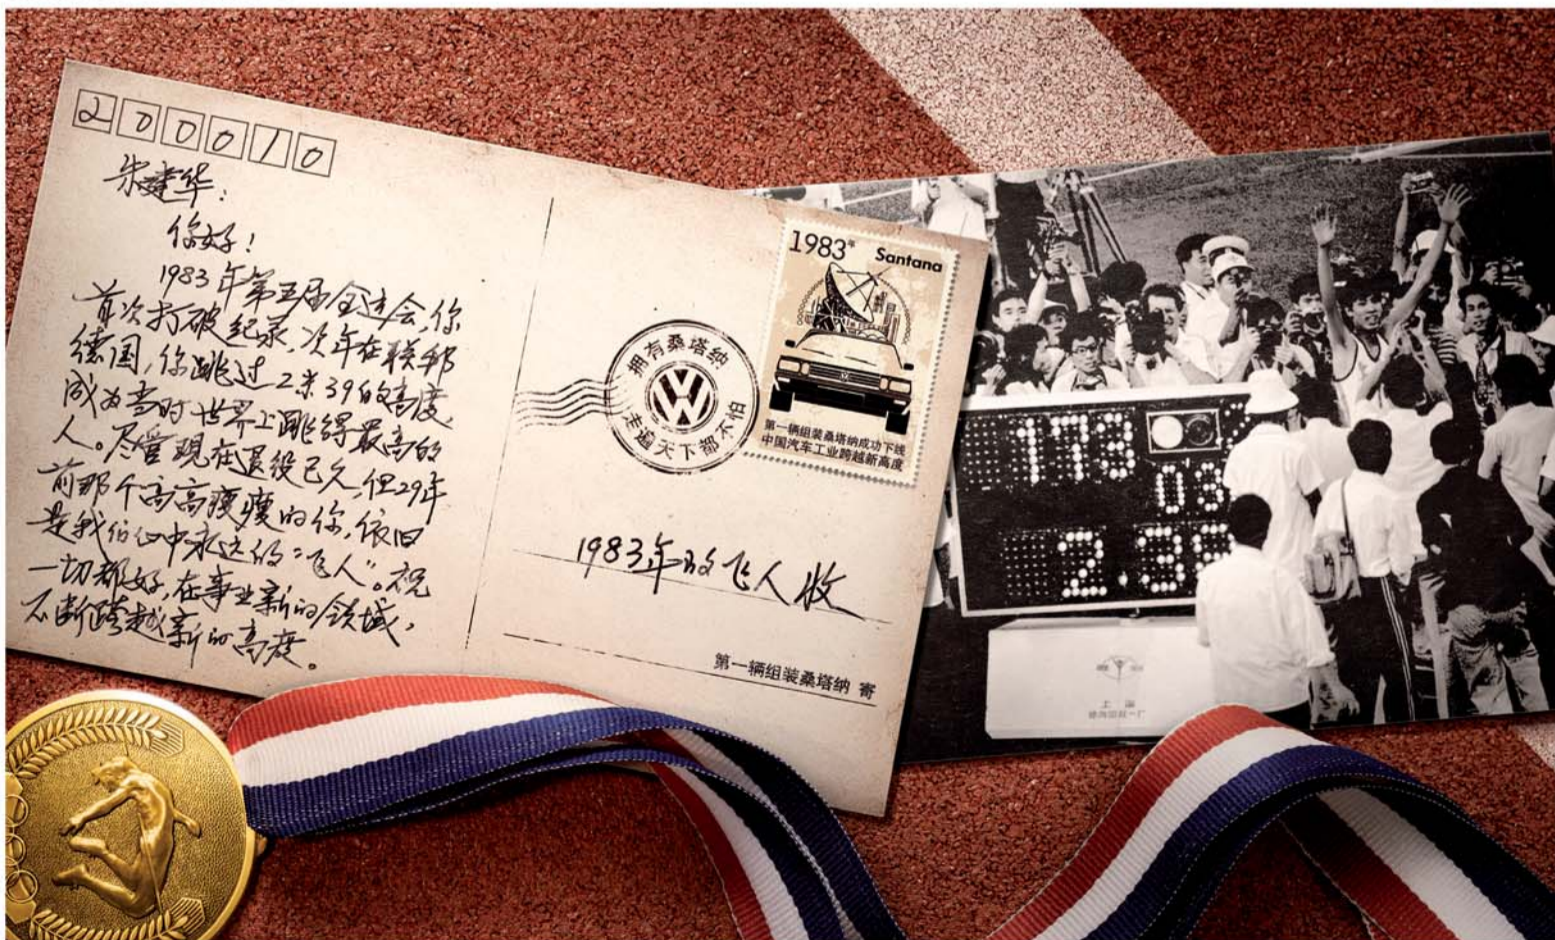 200010
朱建华：
你好！
1983年第五届全运会，你
首次打破纪录，次年在联邦
德国，你跳过2米39的高度，
成为当时世界上跳得最高的
人。尽管现在退役已久，但29年
前那个高高瘦瘦的你，依旧
是我们心中永远的“飞人”。祝
一切都好，在事业新的领域，
不断跨越新的高度。
拥有桑塔纳
走遍天下都不怕
1983年 Santana
第一辆组装桑塔纳成功下线
中国汽车工业跨越新高度
1983年的飞人收
第一辆组装桑塔纳 寄
173
2.3
上海